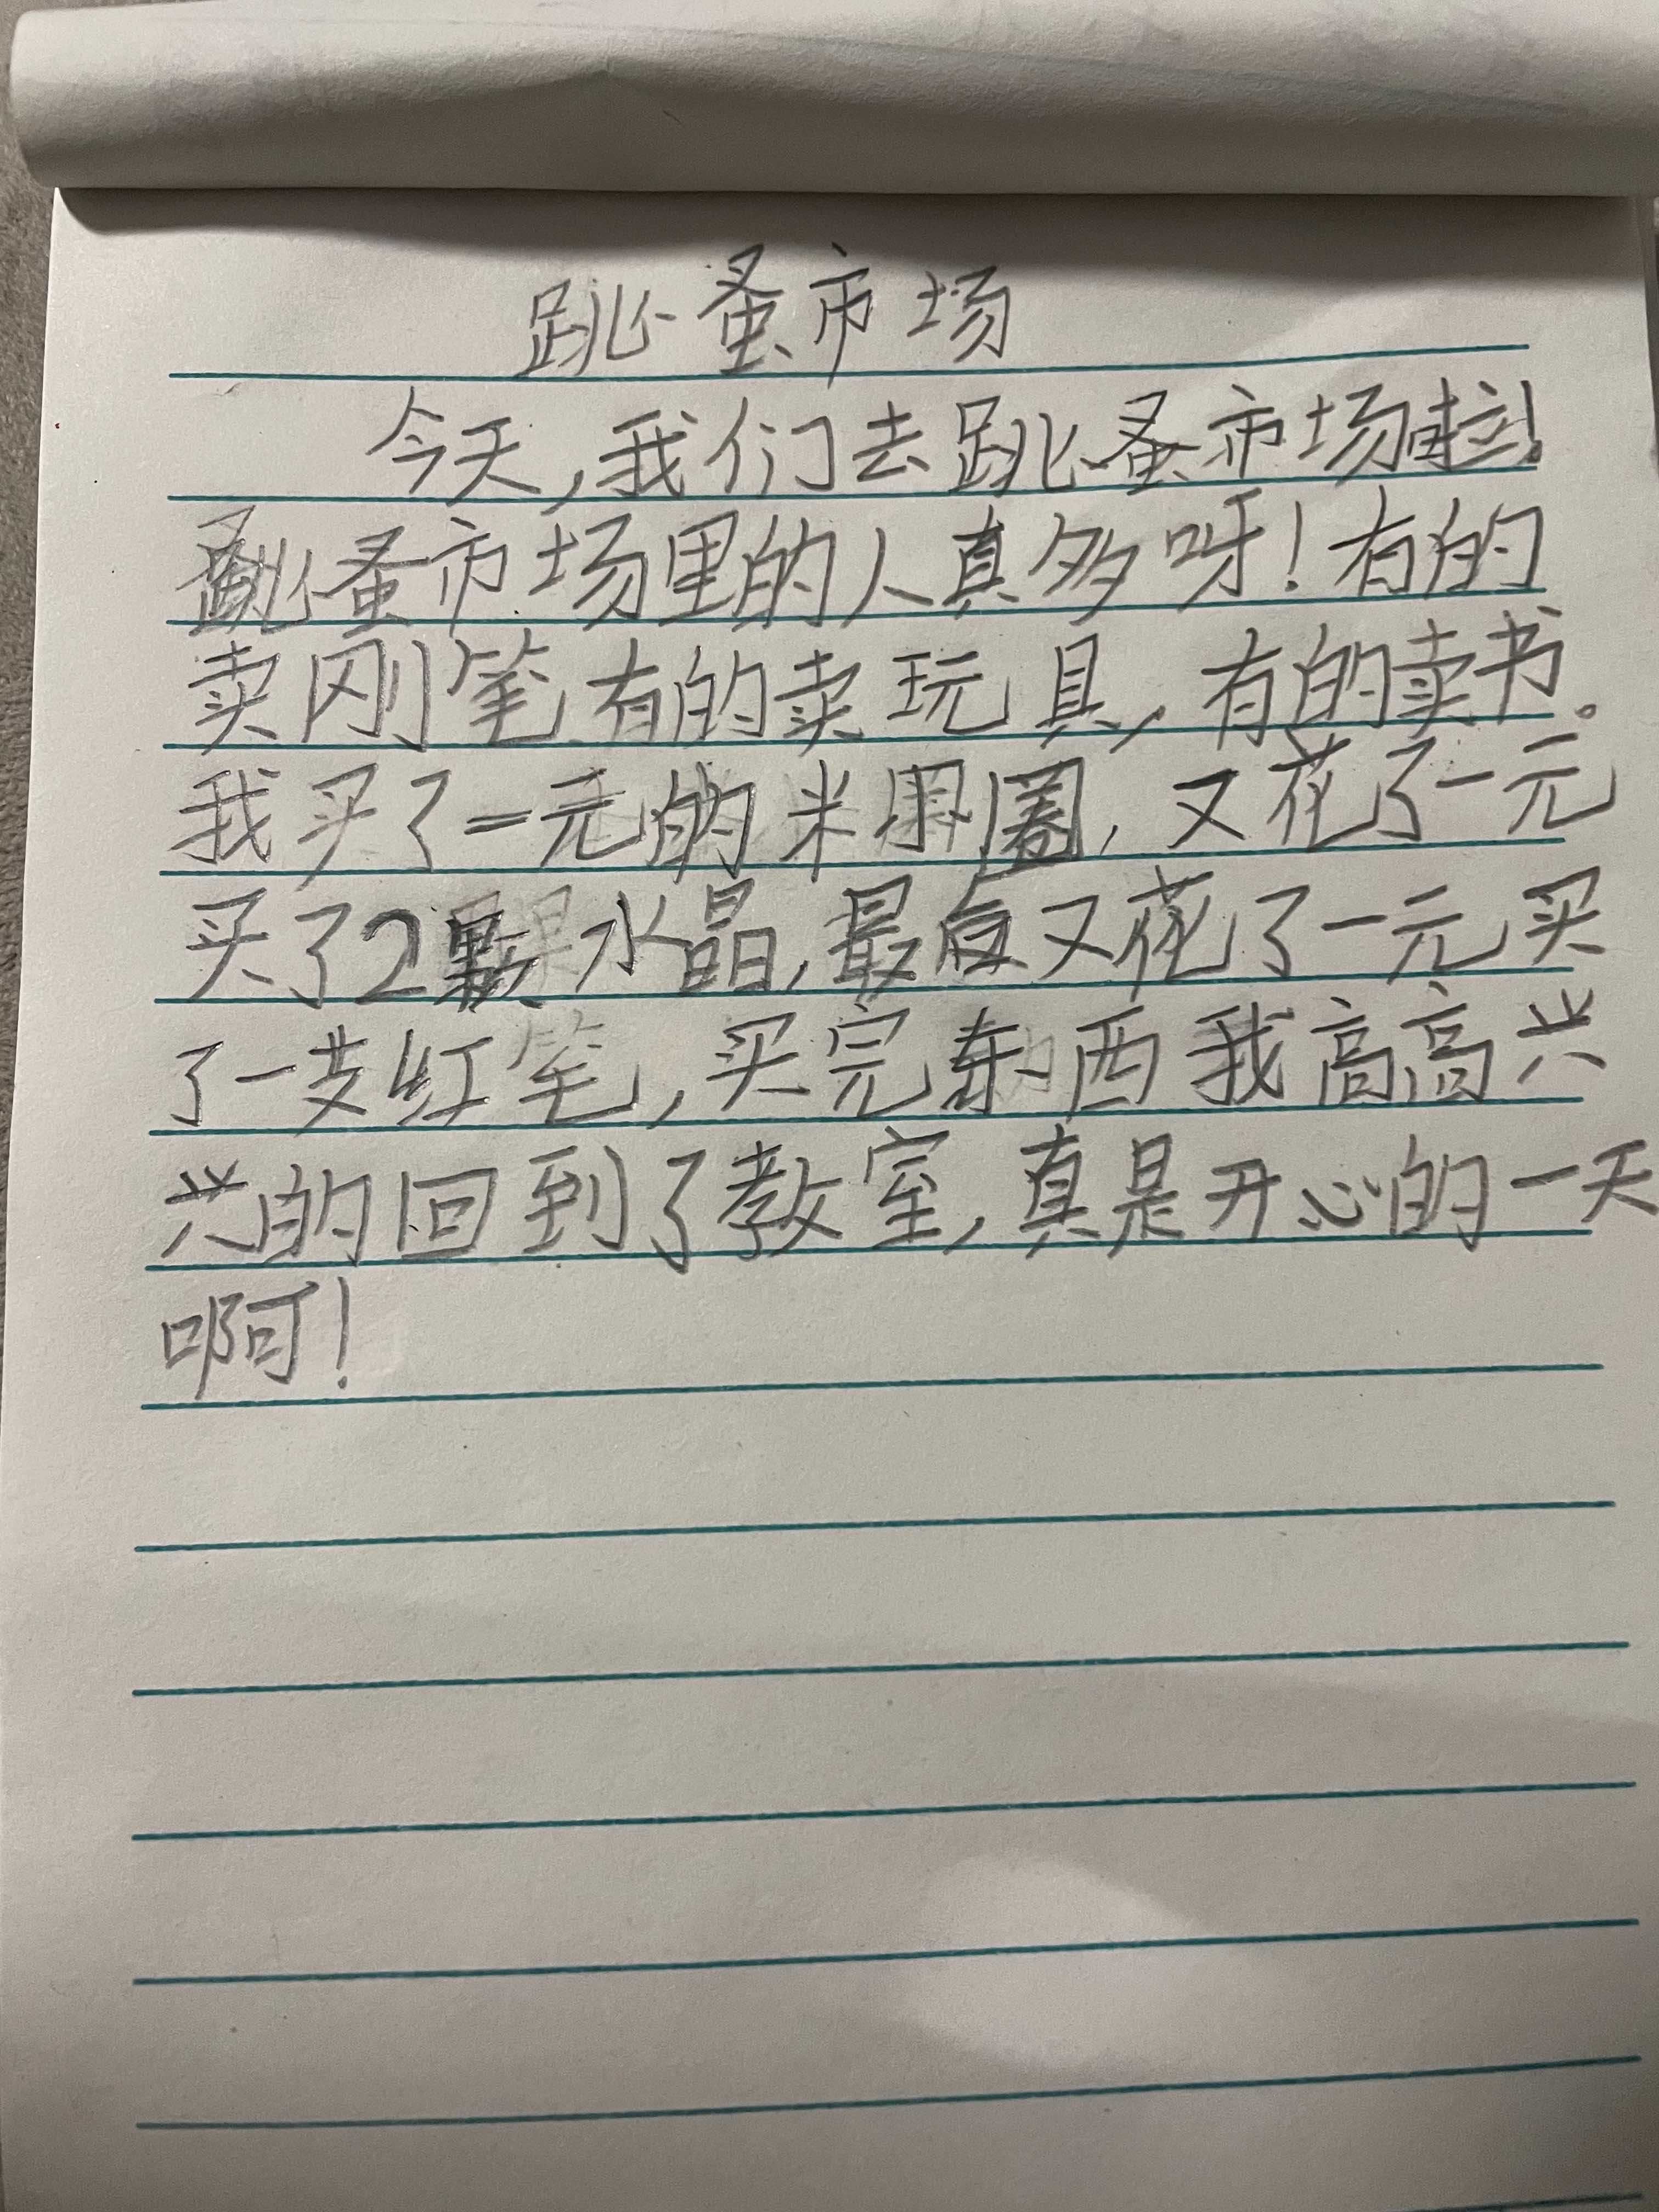 跳蚤市场
今天,我们去跳蚤市场啦!
跳蚤市场里的人真多呀!有的
卖刚笔,有的卖玩具,有的卖书。
我买了二元的米果圈,又花了一元
买了2颗水晶,最后又花了一元买
了一支红笔,买完东西我高高兴
兴的回到了教室,真是开心的一天
啊!